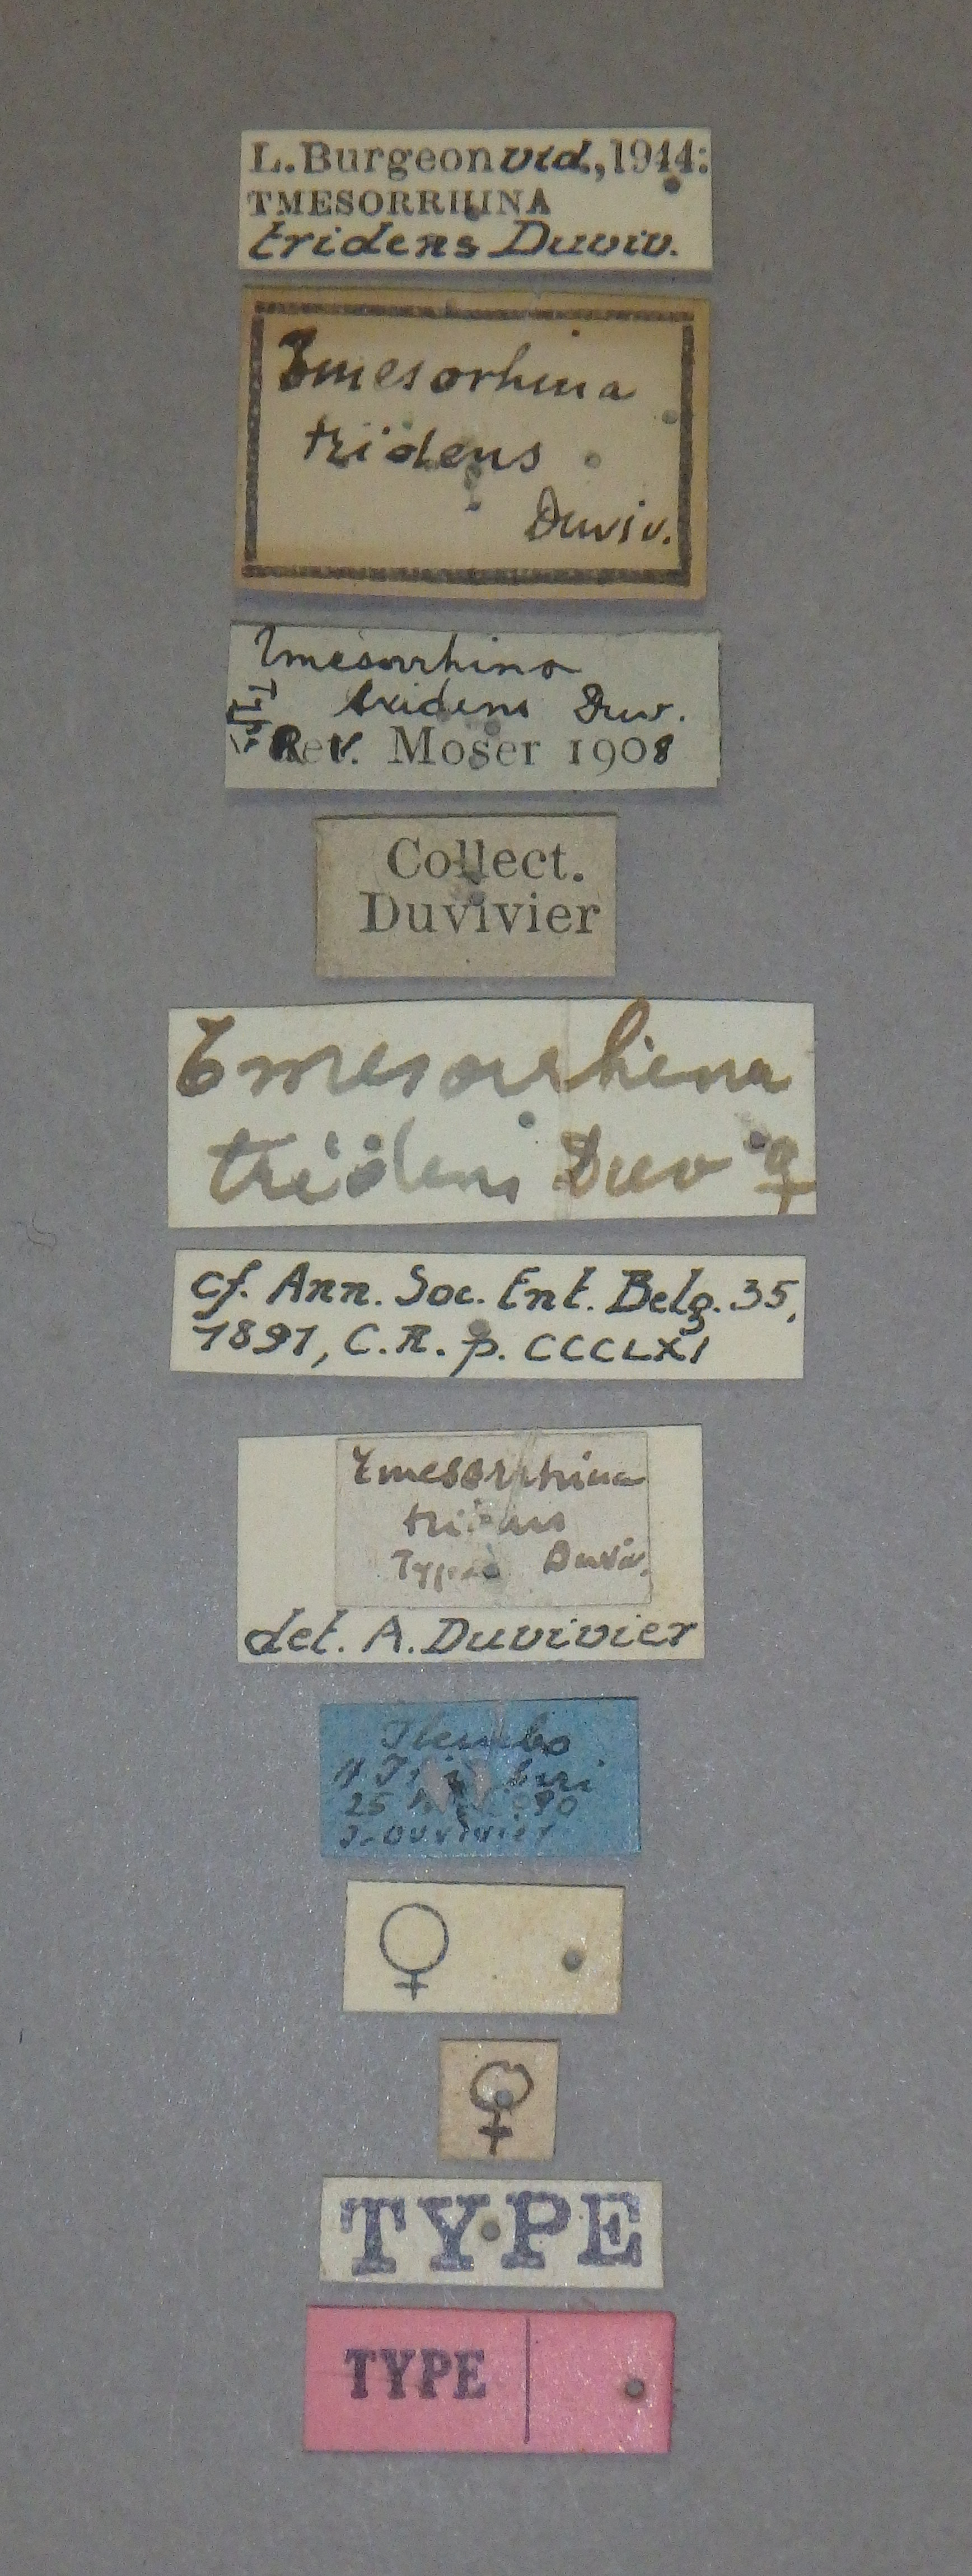 L. Burgeon vid., 1944:
TMESORRHINA
tridens Duviv.
Tmesorhina
tridens
Duviv.
Tmesorrhina
tridens Duv.
Type
Rev. Moser 1908
Collect.
Duvivier
Tmesorrhina
tridens Duv ♀
cf. Ann. Soc. Ent. Belg. 35,
1891, C.R. p. CCCLXI
Tmesorrhina
Duviv.
det. A. Duvivier
25
J. Duvivier
♀
♀
TYPE
TYPE